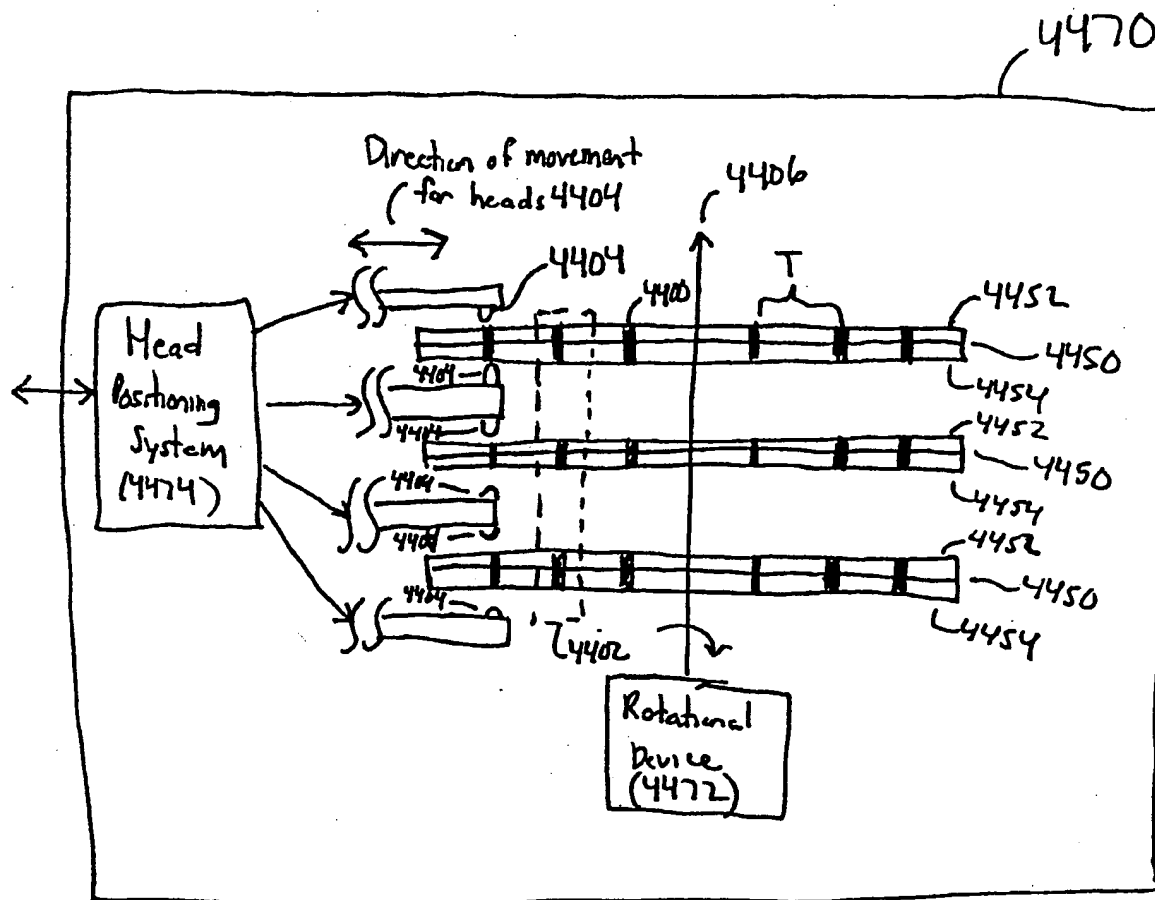 4470
Direction of movement
for heads 4404
4406
4404
T
4400
4452
4450
4454
Head
Positioning
System
(4474)
4404
4404
4452
4450
4454
4404
4404
4452
4450
4454
4404
4402
Rotational
Device
(4472)